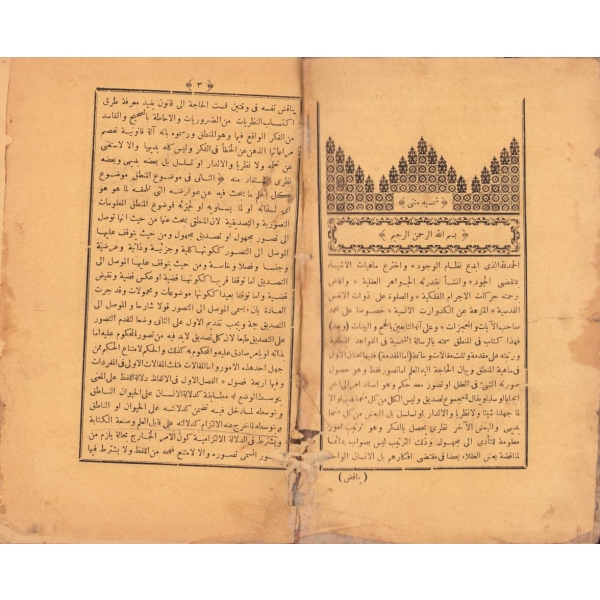 ﴿ شمسيه متنى ﴾
﴿ بسم الله الرحمن الرحيم ﴾
الحمدلله الذى ابدع نظام الوجود * واخترع ماهيات الاشياء
بمقتضى الجود * وانشأ بقدرته الجواهر العقلية * وافاض
برحمته حركات الاجرام الفلكية * والصلوة على ذوات الانفس
القدسية * المنزهة عن الكدورات الانسية * خصوصا على محمد
صاحب الآيات والمعجزات * وعلى آله التابعين بالحجج والبينات (وبعد)
فهذا كتاب فى المنطق سميته بالرسالة الشمسية فى القواعد المنطقية
ورتبته على مقدمة وثلث مقالات وخاتمة (اما المقدمة) ففيها بحثان الاول
فى ماهية المنطق وبيان الحاجة اليه العلم اما تصور فقط وهو حصول
صورة الشئ فى العقل او تصور معه حكم وهو اسناد امر الى آخر
ايجابا او سلبا ويقال للمجموع تصديق وليس الكل من كل منهما بديهيا والا
لما جهلنا شيئا ولا نظريا والا لدار او تسلسل بل البعض من كل منهما
بديهى والبعض الآخر نظرى يحصل بالفكر وهو ترتيب امور
معلومة للتأدى الى مجهول وذلك الترتيب ليس بصواب دائما
لمناقضة بعض العقلاء بعضا فى مقتضى افكارهم بل الانسان الواحد
(يناقض)
﴿ ٣ ﴾
يناقض نفسه فى وقتين فمست الحاجة الى قانون يفيد معرفة طرق
اكتساب النظريات من الضروريات والاحاطة بالصحيح والفاسد
من الفكر الواقع فيها وهو المنطق ورسموه بانه آلة قانونية تعصم
مراعاتها الذهن عن الخطأ فى الفكر وليس كله بديهيا والا لاستغنى
عن تعلمه ولا نظريا والا لدار او تسلسل بل بعضه بديهى وبعضه
نظرى مستفاد منه ﴿ الثانى فى موضوع المنطق موضوع
كل علم ما يبحث فيه عن عوارضه التى تلحقه لما هو هو
اى لذاته او لما يساويه او لجزئه فموضوع المنطق المعلومات
التصورية والتصديقية لان المنطق يبحث عنها من حيث انها توصل
الى تصور مجهول او تصديق مجهول ومن حيث يتوقف عليها
الموصل الى التصور ككونها كلية وجزئية وذاتية وعرضية
وجنسا وفصلا وخاصة ومن حيث يتوقف عليها الموصل الى
التصديق اما توقفا قريبا ككونها قضية او عكس قضية ونقيض
قضية واما توقفا بعيدا ككونها موضوعات ومحمولات وقد جرت
العادة بان يسمى الموصل الى التصور قولا شارحا والموصل الى
التصديق حجة ويجب تقديم الاول على الثانى وضعا لتقدم التصور
على التصديق طبعا لان كل تصديق لابد فيه من تصور المحكوم عليه اما
بذاته او بامر صادق عليه والمحكوم به كذلك والحكم لامتناع الحكم ممن
جهل احد هذه الامور واما المقالات فثلث المقالات الاولى فى المفردات
وفيها اربعة فصول * الفصل الاول فى الالفاظ دلالة اللفظ على المعنى
بتوسط الوضع له مطابقة كدلالة الانسان على الحيوان الناطق
وبتوسطه لما دخل فيه تضمن كدلالته على الحيوان او الناطق
وبتوسطه لما خرج عنه التزام كدلالته على قابل العلم وصنعة الكتابة
ويشترط فى الدلالة الالتزامية كون الامر الخارج بحالة يلزم من
تصور المسمى تصوره والا لامتنع فهمه من اللفظ ولا يشترط فيها